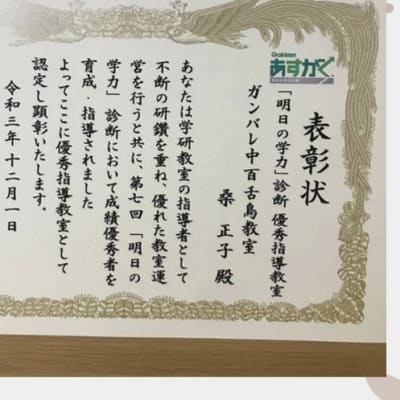 表彰状
Gakken
あすがく
「明日の学力」診断 優秀指導教室
ガンバレ中百舌鳥教室
桑 正子 殿
あなたは学研教室の指導者として
不断の研鑽を重ね、優れた教室運
営を行うと共に、第七回 「明日の
学力」診断において成績優秀者を
育成・指導されました
よってここに優秀指導教室として
認定し顕彰いたします。
令和三年十二月一日